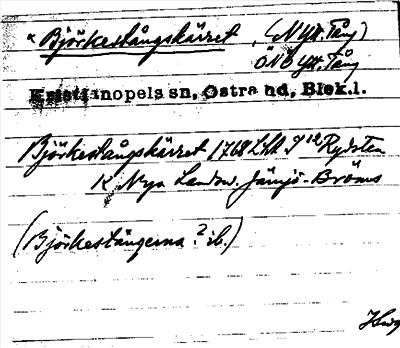 * Björkestångskärret, (N Ytt. Tång)
ÖNÖ Ytt. Tång
Kristianopels sn, Östra hd, Blek.l.
Björkestångskärret 1768 Lht J12 Rydsten
K. Nya Landsv. Jämjö-Bröms
(Björkestängerna? ib.)